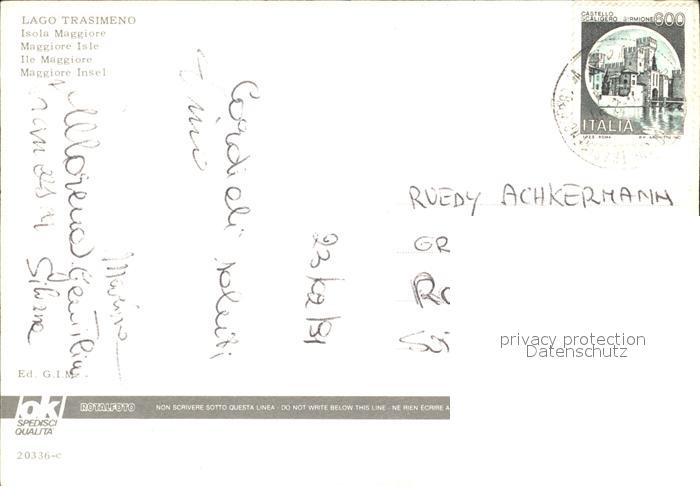 LAGO TRASIMENO
Isola Maggiore
Maggiore Isle
Ile Maggiore
Maggiore Insel
CASTELLO
SCALIGERO SIRMIONE 600
ITALIA
Cordiali saluti
23/02/91
Marisa
Silvana
RUEDY ACHKERMANN
GR
privacy protection
Datenschutz
Ed. G.I.M.
ok
SPEDISCI
QUALITA'
ROTALFOTO
NON SCRIVERE SOTTO QUESTA LINEA - DO NOT WRITE BELOW THIS LINE - NE RIEN ÉCRIRE A
20336-c